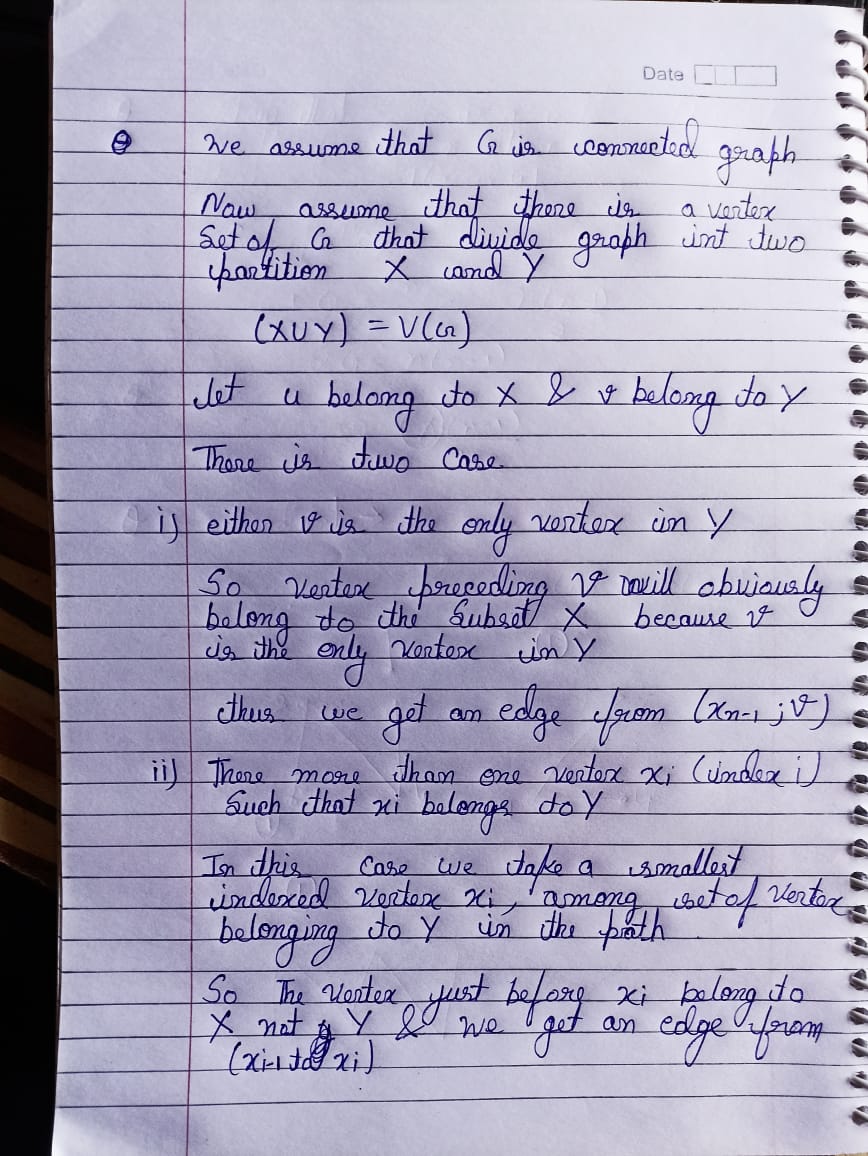 Date
We assume that G is connected graph
Now assume that there is a vertex
Set of G that divide graph int two
partition X and Y
(X∪Y) = V(G)
Let u belong to X & v belong to Y
There is two Case
i) either v is the only vertex in Y
So vertex preceding v will obviously
belong to the Subset X because v
is the only vertex in Y
thus we get an edge from (xn-1 ; v)
ii) There more than one vertex xi (index i)
Such that xi belongs to Y
In this Case we take a smallest
indexed vertex xi, among set of vertex
belonging to Y in the path
So The vertex just before xi belong to
X not Y & we get an edge from
(xi-1 to xi)